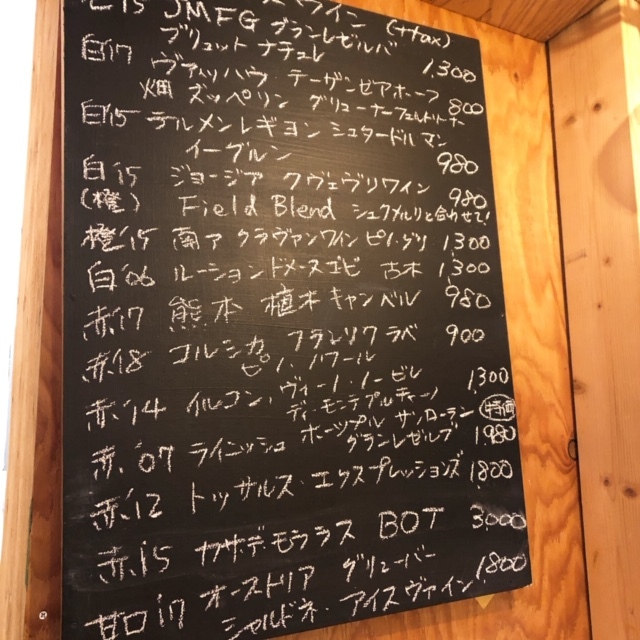 '15 JMFG グランレゼルバ (+tax)
ブリュット ナチュレ 1,300
白'17 ヴァッハウ・テーザンゼアホーフ
畑 ズッペリン グリューナーフェルトリーナー 800
白'15 テルメンレギヨン シュタードルマン
イーグルン 980
白'15 ジョージア クヴェヴリワイン 980
(橙) Field Blend シュクメルリと合わせて!
橙'15 南ア クラヴァンワイン ピノ・グリ 1,300
白'06 ルーションドメーヌゴビ 古木 1,300
赤'17 熊本 植木キャンベル 980
赤'18 コルシカ フランソワラベ 900
ピノ・ノワール
赤'14 イルコン・ヴィーノ・ノービレ 1,300
ディ・モンテプルチャーノ
赤'07 ライニッシュ ホーツプル サンローラン 特価
グランレゼルブ 1,980
赤'12 トッサルス・エクスプレッションズ 1800
赤'15 カサ・デ・モララス BOT 3000
甘口'17 オーストリア グリューバー 1,800
シャルドネ・アイスヴァイン